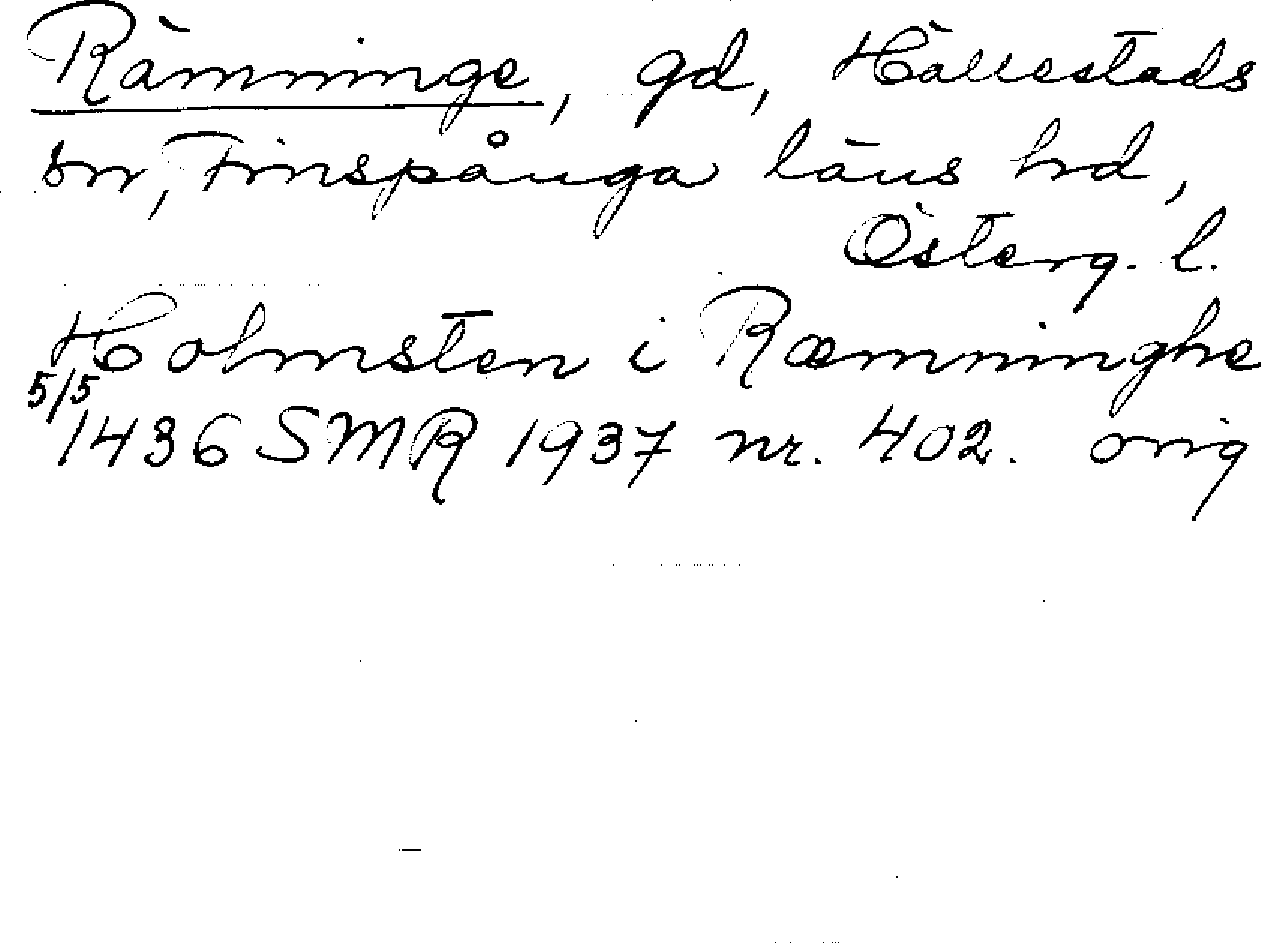 Rämninge, gd, Hällestads
sn, Finspånga läns hd,
Österg. l.
Holmsten i Ræmninghe
5/5
1436 SMR 1937 nr. 402. orig